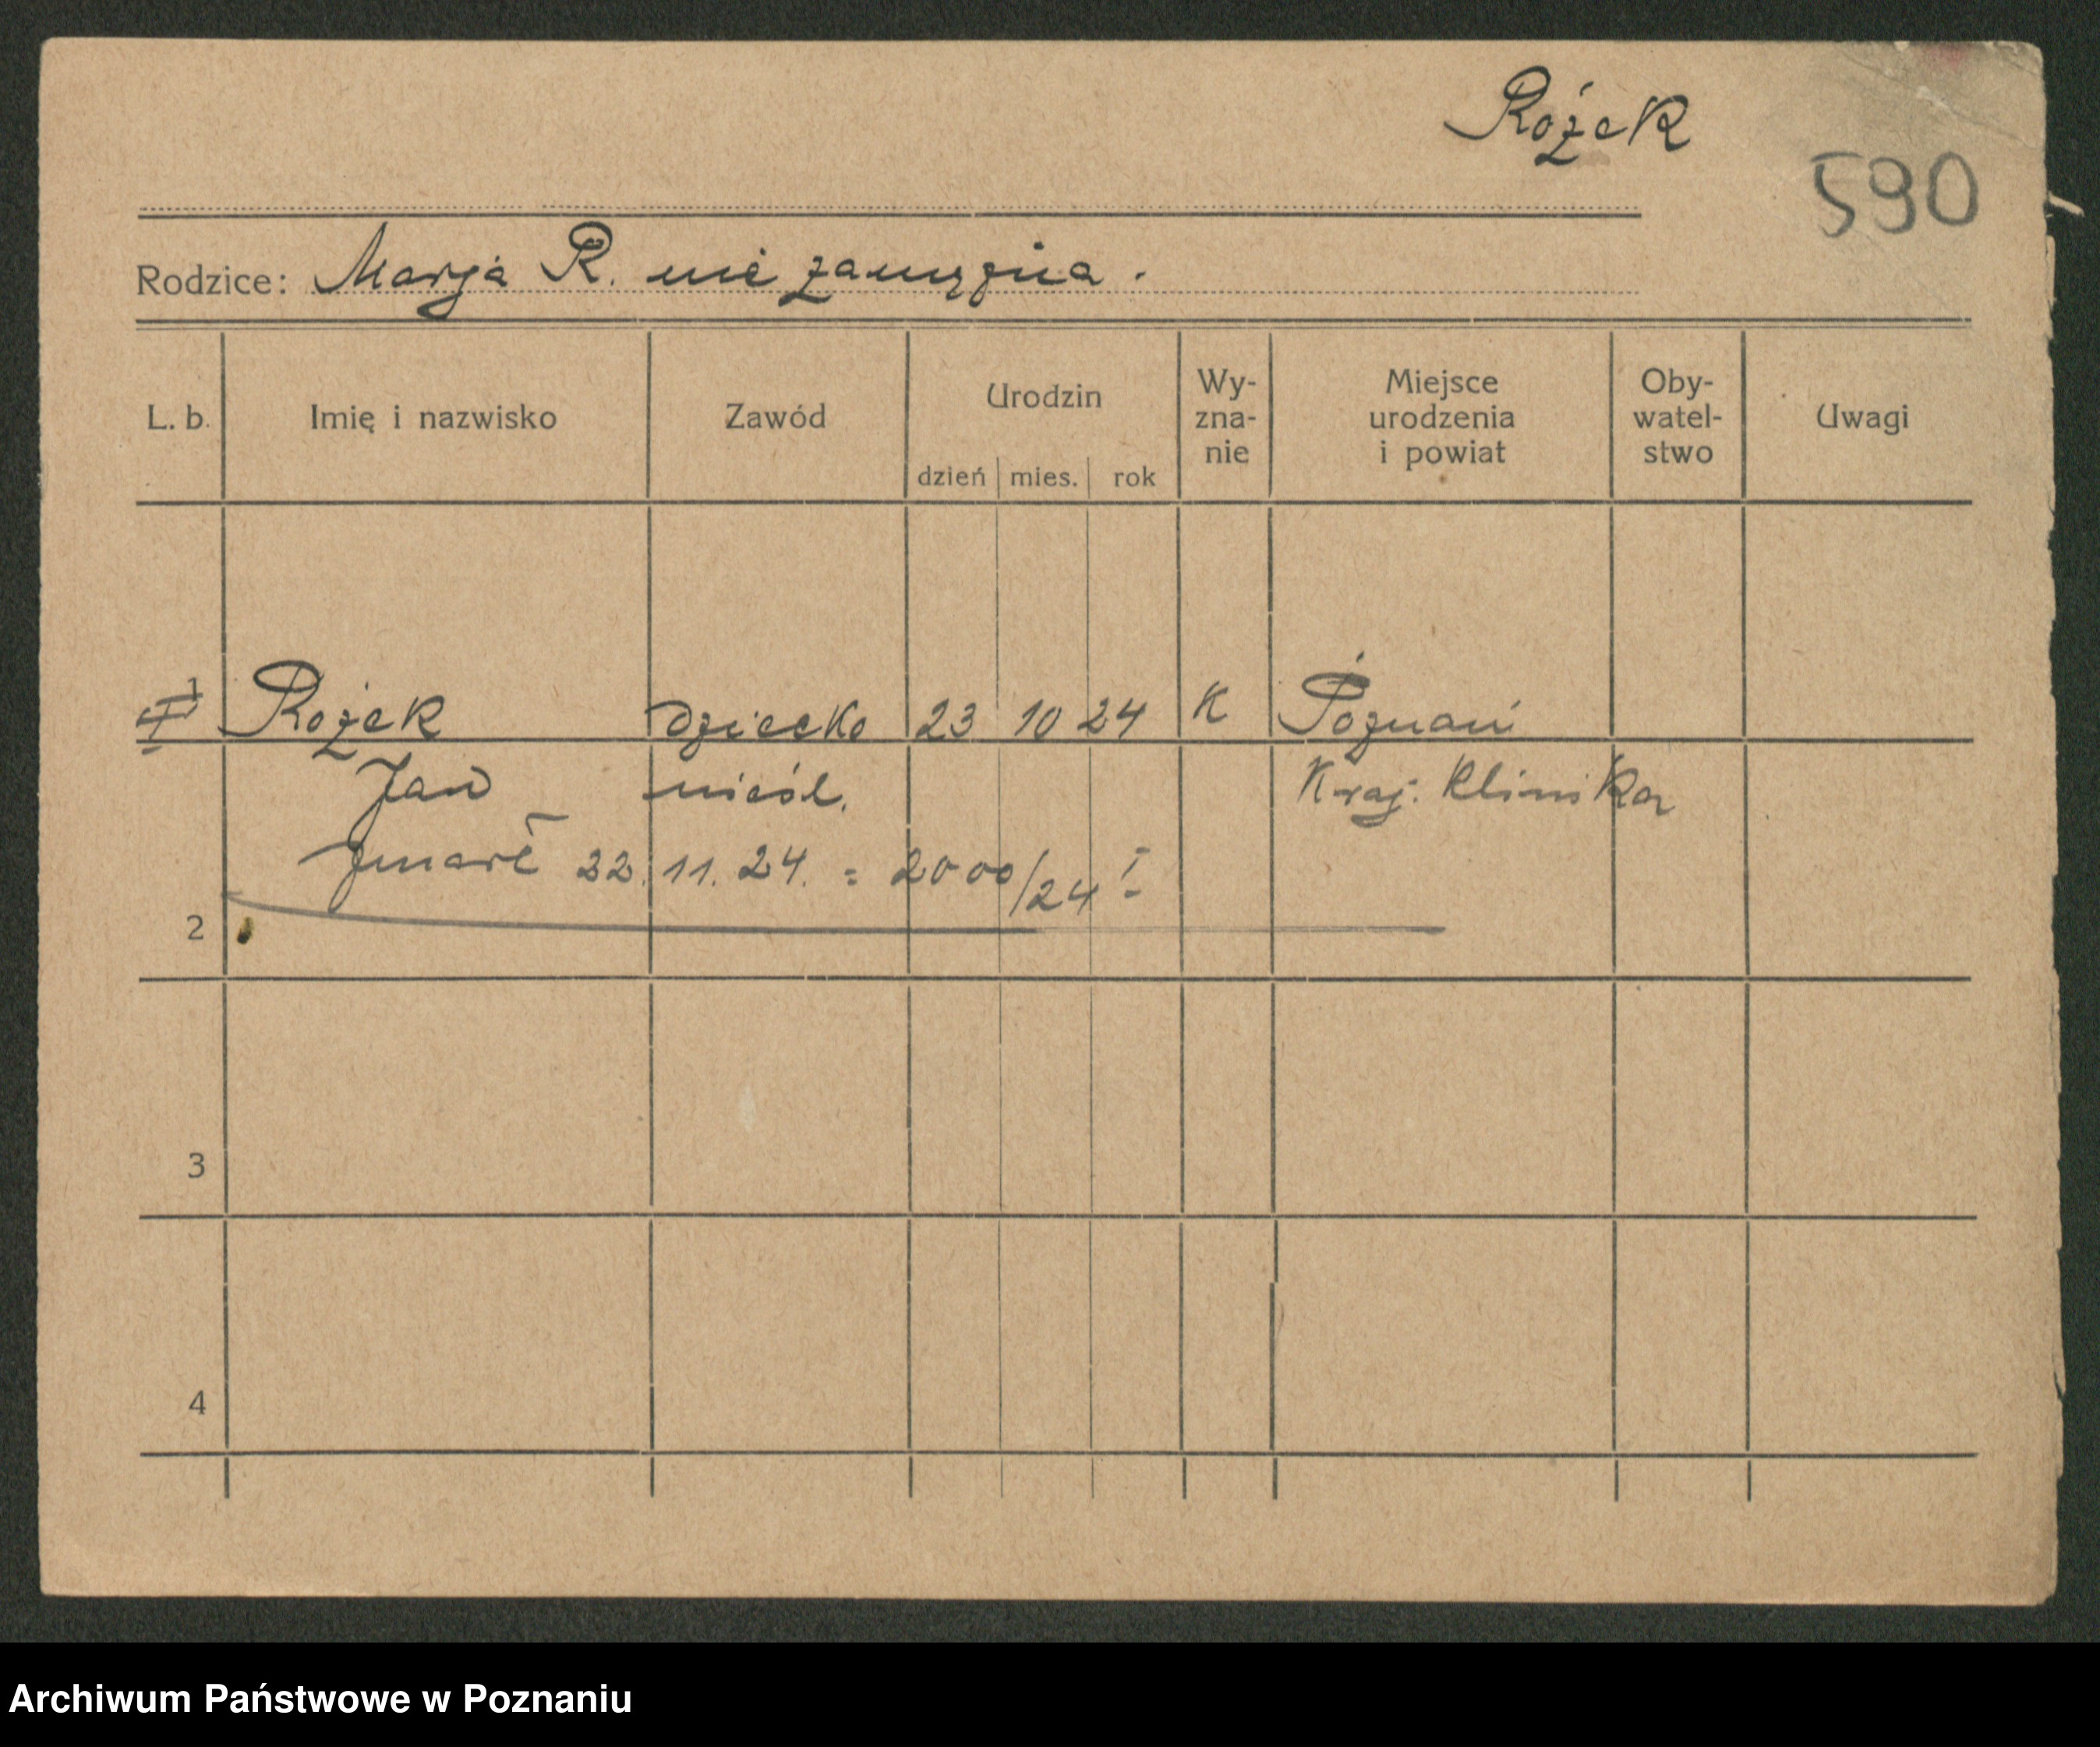 Rożek
590
Rodzice: Marja R. nie zamężna.
L. b. Imię i nazwisko Zawód Urodzin dzień mies. rok Wy-zna-nie Miejsce urodzenia i powiat Oby-watel-stwo Uwagi
1 Rożek dziecko 23 10 24 K Poznań
Jan nieśl. Kraj. Klinika
zmarł 22. 11. 24. = 2000/24 I
2
3
4
Archiwum Państwowe w Poznaniu